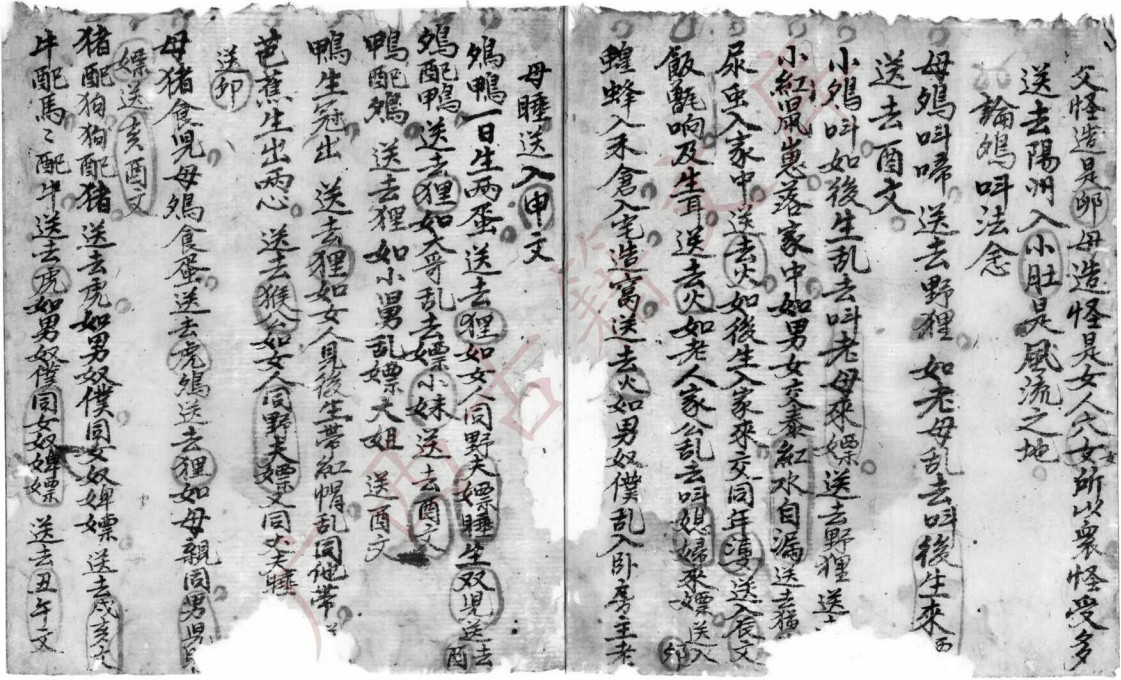 父怪造是卯母造怪是女人六女所以衆怪受多
送去陽州入小肚是風流之地
論鳮呌法念
母鳮呌啼 送去野狸 如老母乱去呌後生來
送去酉文
小鳮呌如後生乱去呌老母來嫖 送去野狸 送
小紅鼠崽落家中如男女交泰紅水自漏送去猫
尿虫入家中 送去火如後生入家來交同年 送入辰文
飯甑响及生耳送去火如老人家公乱去呌媳婦來嫖送入卯
蝗蜂入禾倉入宅造窩送去火如男奴僕乱入卧房主老
母睡送入申文
鳮鴨一日生两蛋送去狸如女人同野夫嫖睡生双児送去酉
鳮配鴨 送去狸如大哥乱去嫖小妹 送去酉文
鴨配鳮 送去狸如小舅乱嫖大姐 送酉文
鴨生冠出 送去狸如女人見後生带紅帽乱同他带
芭蕉生出两心 送去猴公如女人同野夫嫖又同丈夫睡
送卯
母猪食児母鳮食蛋送去虎鳮送去狸如母親同男児
嫖送亥酉文
猪配狗狗配猪 送去虎如男奴僕同女奴婢嫖 送去戌亥文
牛配馬〻配牛 送去虎如男奴僕同女奴婢嫖 送去丑午文